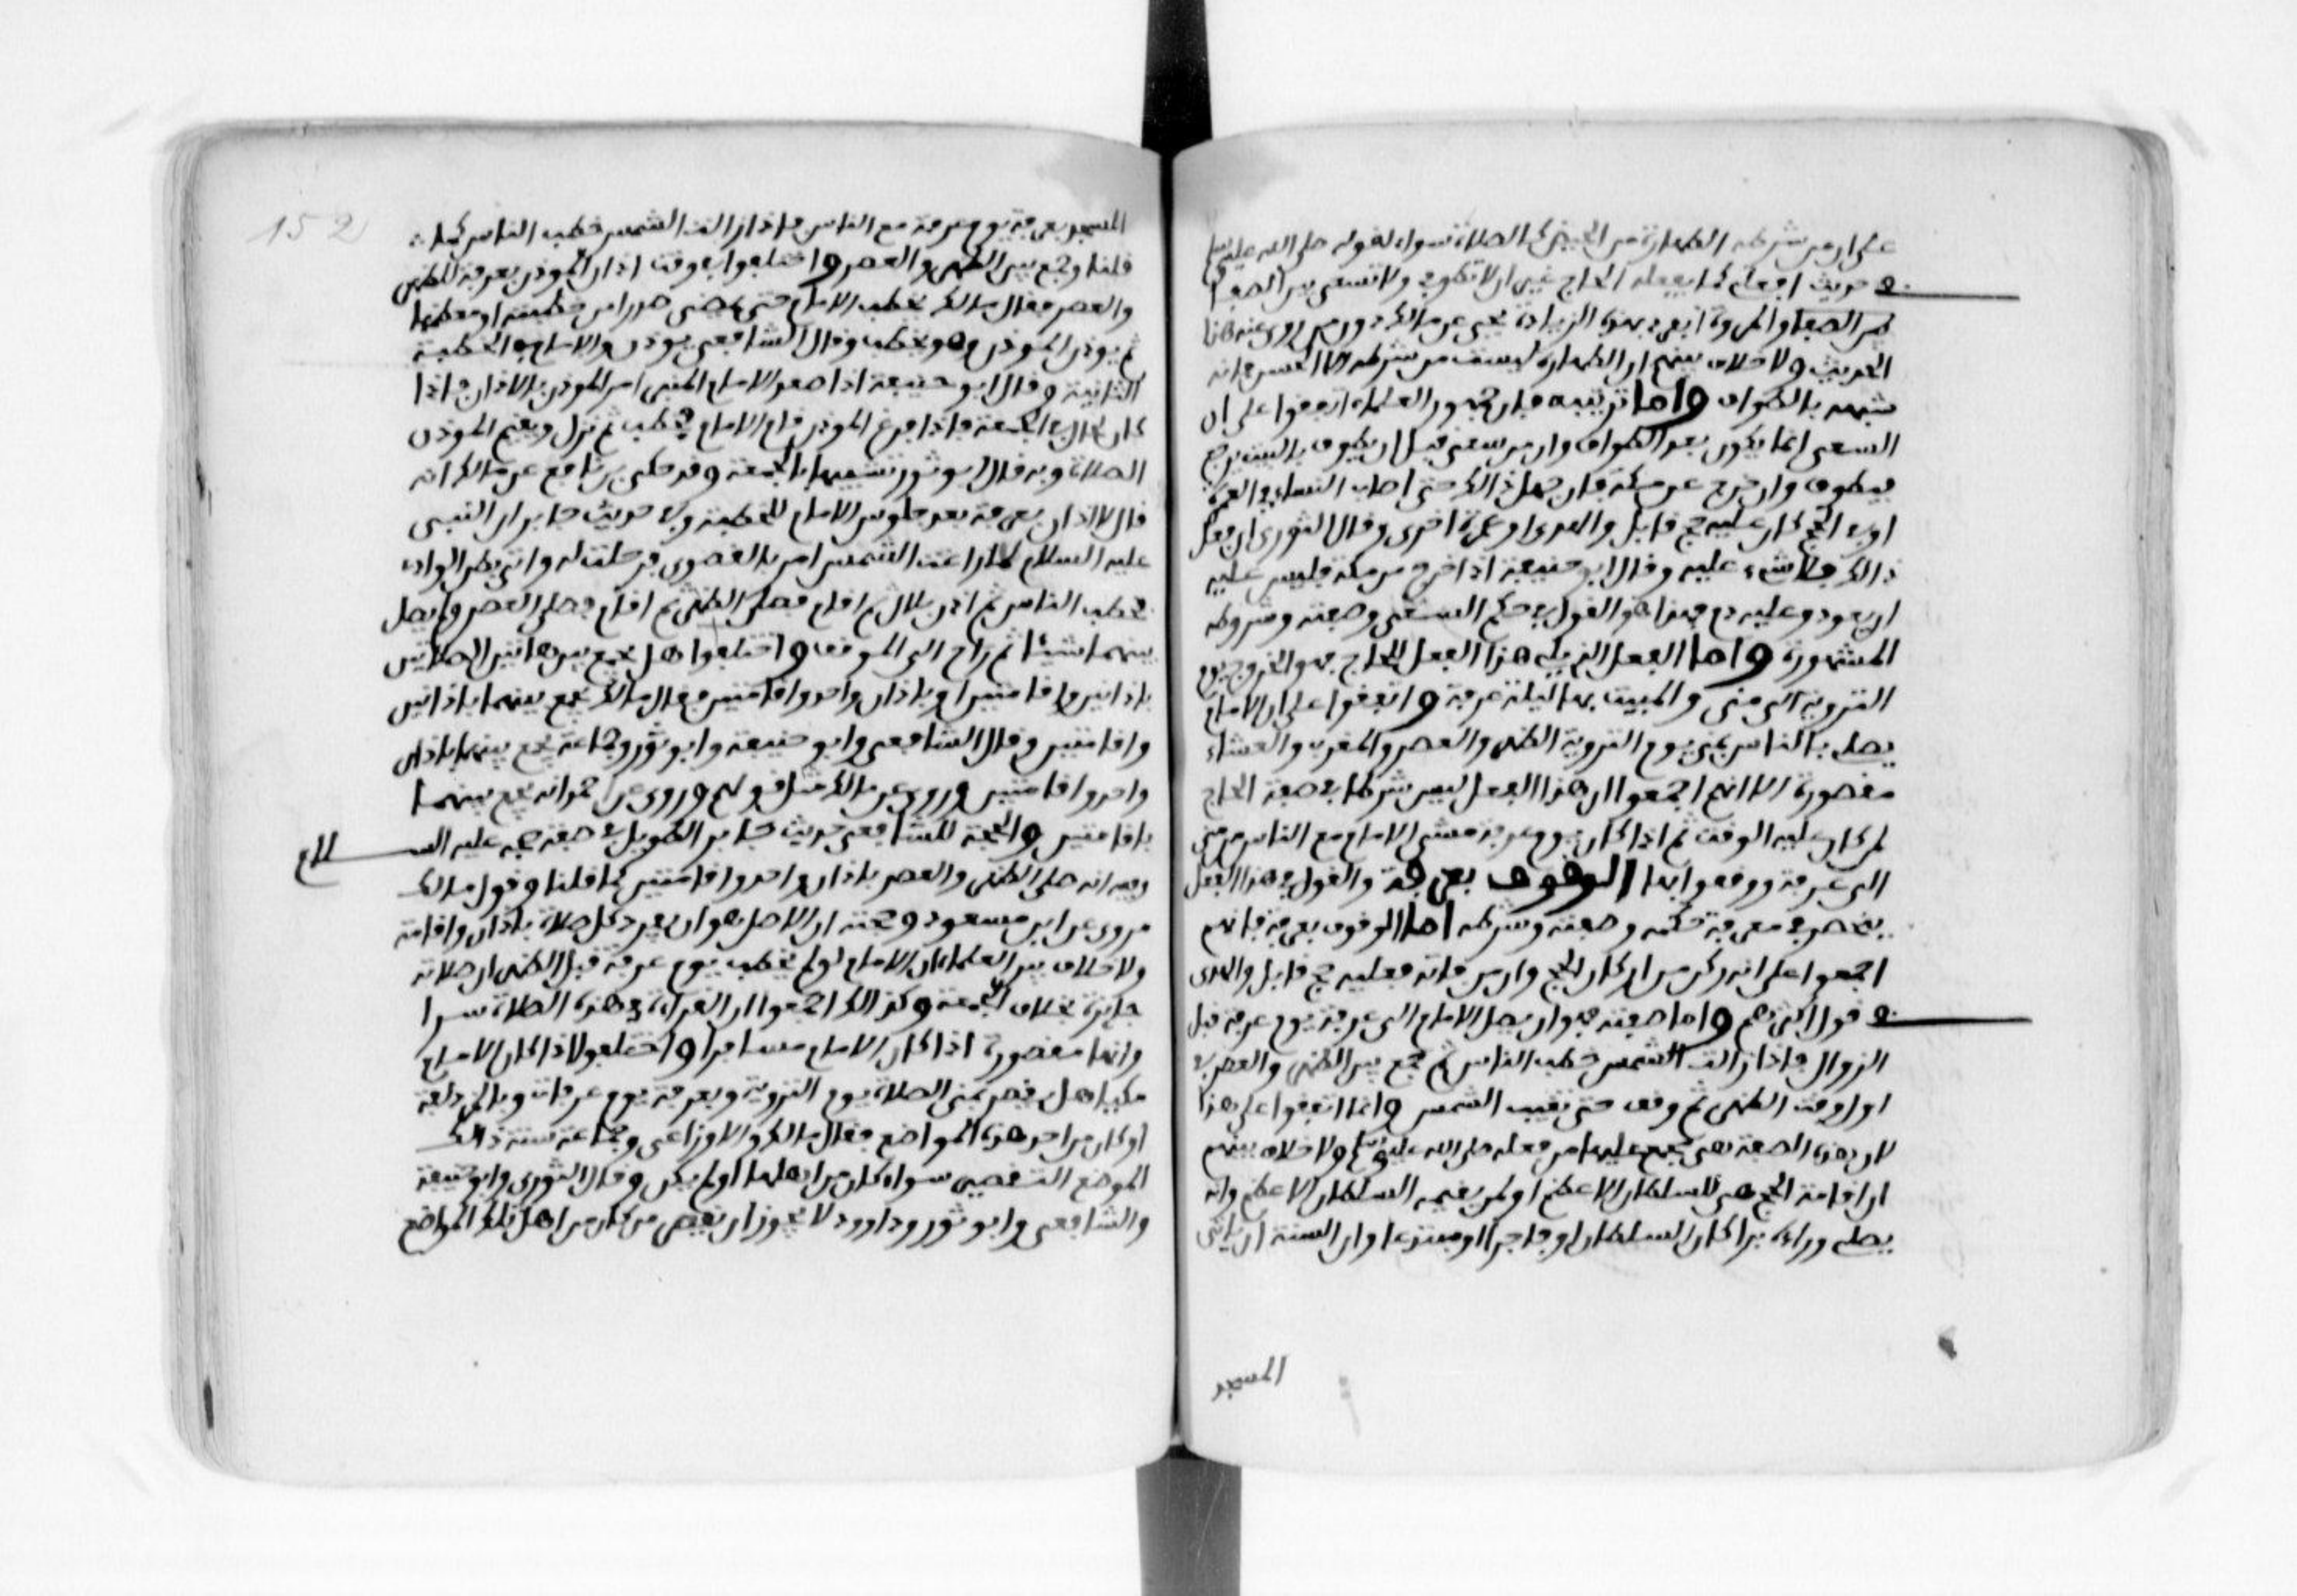 على ان من شرطه الطهارة من الحيض كالصلاة سواء لقوله صلى الله عليه وسلم
في حديث افعلي كما يفعله الحاج غير ان لا تطوفي ولا تسعى بين الصفا
بين الصفا والمروة انفرد بهذه الزيادة يحيى عن مالك دون من روى عنه هذا
الحديث ولا خلاف بينهم ان الطهارة ليست من شرطه الا الحسن فانه
شبهه بالطواف واما ترتيبه فان جمهور العلماء اتفقوا على ان
السعي انما يكون بعد الطواف وان من سعى قبل ان يطوف بالبيت يرجع
فيطوف وان خرج عن مكة فان جهل ذالك حتى اصاب النساء في العمرة
او في الحج كان عليه حج قابل والهدى او عمرة اخرى وقال الثوري ان فعل
ذالك فلا شيء عليه وقال ابو حنيفة اذا خرج من مكة فليس عليه
ان يعود وعليه دم فهذا هو القول في حكم السعي وصفته وشروطه
المشهورة واما الفعل الذي يلي هذا الفعل للحاج فهو الخروج يوم
التروية الى منى والمبيت بها ليلة عرفة واتفقوا على ان الامام
يصلي بالناس بمنى يوم التروية الظهر والعصر والمغرب والعشاء
مقصورة الا انهم اجمعوا ان هذا الفعل ليس شرطا في صحة الحج
لمن ضاق عليه الوقت ثم اذا كان يوم عرفة مشى الامام مع الناس من منى
الى عرفة ووقفوا بها الوقوف بعرفة والقول في هذا الفعل
ينحصر في معرفة حكمه وصفته وشرطه اما الوقوف بعرفة فانهم
اجمعوا على انه ركن من اركان الحج وان من فاته فعليه حج قابل والهدى
في قول اكثرهم واما صفته فهو ان يصل الامام الى عرفة يوم عرفة قبل
الزوال فاذا زالت الشمس خطب الناس ثم جمع بين الظهر والعصر في
اول وقت الظهر ثم وقف حتى تغيب الشمس وانما اتفقوا على هذا
لان هذه الصفة هي مجمع عليها من فعله صلى الله عليه وسلم ولا خلاف بينهم
ان اقامة الحج هي للسلطان الاعظم او لمن يقيمه السلطان الاعظم وانه
يصلى وراءه برا كان السلطان او فاجرا او مبتدعا وان السنة ان ياتى
المسجد
152
المسجد بعرفة يوم عرفة مع الناس فاذا زالت الشمس خطب الناس كما
قلنا وجمع بين الظهر والعصر واختلفوا في وقت اذان المؤذن بعرفة للظهر
والعصر فقال مالك يخطب الامام حتى يمضي صدرا من خطبته او معظمها
ثم يوذن الموذن وهو يخطب وقال الشافعي يوذن والامام في الخطبة
الثانية وقال ابو حنيفة اذا صعد الامام المنبر امر الموذن بالاذان فاذا
كان كالحال في الجمعة فاذا فرغ الموذن قام الامام يخطب ثم نزل ويقيم الموذن
الصلاة وبه قال ابو ثور تشبيها بالجمعة وقد حكى بن نافع عن مالك انه
قال الاذان بعرفة بعد جلوس الامام للخطبة وفي حديث جابر ان النبي
عليه السلام لما زاغت الشمس امر بالقصوى فرحلت له واتى بطن الوادي
فخطب الناس ثم اذن بلال ثم اقام فصلى الظهر ثم اقام فصلى العصر ولم يصل
بينهما شيئا ثم راح الى الموقف واختلفوا هل يجمع بين هاتين الصلاتين
باذانين واقامتين او باذان واحد واقامتين فقال مالك يجمع بينهما باذانين
واقامتين وقال الشافعي وابو حنيفة وابو ثور وجماعة يجمع بينهما باذان
واحد واقامتين وروى عن مالك مثل قولهم وروى عن احمد انه يجمع بينهما
باقامتين والحجة للشافعي حديث جابر الطويل في صفة حجه عليه السلام
وفيه انه صلى الظهر والعصر باذان واحد واقامتين كما قلنا وقول مالك
مروى عن ابن مسعود وحجته ان الاصل هو ان يفرد كل صلاة باذان واقامة
ولا خلاف بين العلماء ان الامام لو لم يخطب يوم عرفة قبل الظهر ان صلاته
جايزة بخلاف الجمعة وكذالك اجمعوا ان القراءة في هذه الصلاة سرا
وانها مقصورة اذا كان الامام مسافرا واختلفوا اذا كان الامام
مكيا هل يقصر بمنى الصلاة يوم التروية وبعرفة يوم عرفات وبالمزدلفة
او كان من احد هذه المواضع فقال مالك والاوزاعي وجماعة سنة ذالك
الموضع التقصير سواء كان من اهلها او لم يكن وقال الثوري وابو حنيفة
والشافعي وابو ثور وداوود لا يجوز ان يقصر من كان من اهل تلك المواضع